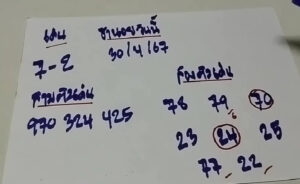 เด่น
ฮานอยวันนี้
30/4/67
7-2
สามตัวเด่น
970 324 425
สองตัวเด่น
78 79 70
23 24 25
77 22